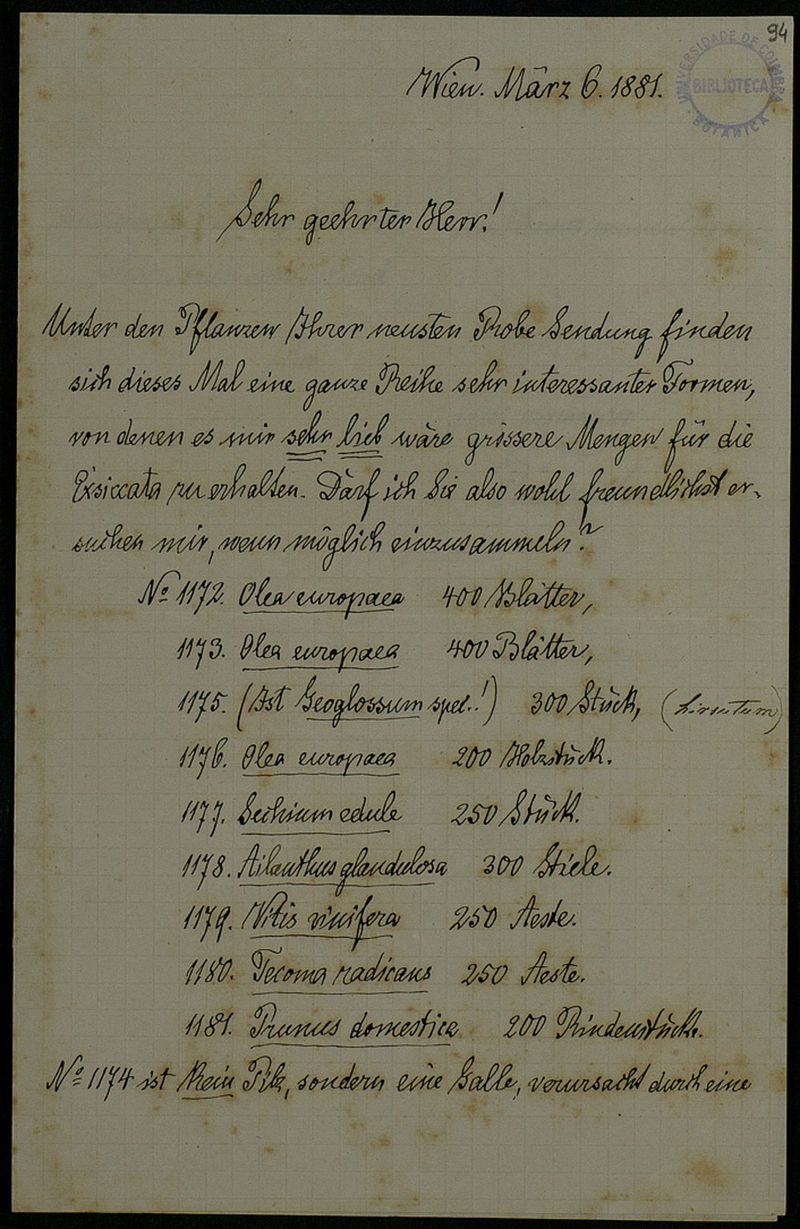 94
UNIVERSIDADE DE COIMBRA
BIBLIOTECA
BOTANICA
Wien. März 6. 1881.
Sehr geehrter Herr!
Unter den Pflanzen Ihrer neusten Probe Sendung finden
sich dieses Mal eine ganze Reihe sehr interessanter Formen,
von denen es mir sehr lieb wäre grössere Mengen für die
Exsiccata zu erhalten. Darf ich Sie also wohl freundlichst er-
suchen mir, wenn möglich einzusammeln?
No 1172. Olea europaea 400 Blätter,
1173. Olea europaea 400 Blätter,
1175. (Ist Geoglossum spec.!) 300 Stück, (hirsutum)
1176. Olea europaea 200 Holzstück.
1177. Sechium edule 250 Stück.
1178. Ailanthus glandulosa 300 Stiele.
1179. Vitis vinifera 250 Aeste.
1180. Tecoma radicans 250 Aeste.
1181. Prunus domestica 200 Rindenstück.
No 1174 ist kein Pilz, sondern eine Galle, verursacht durch eine